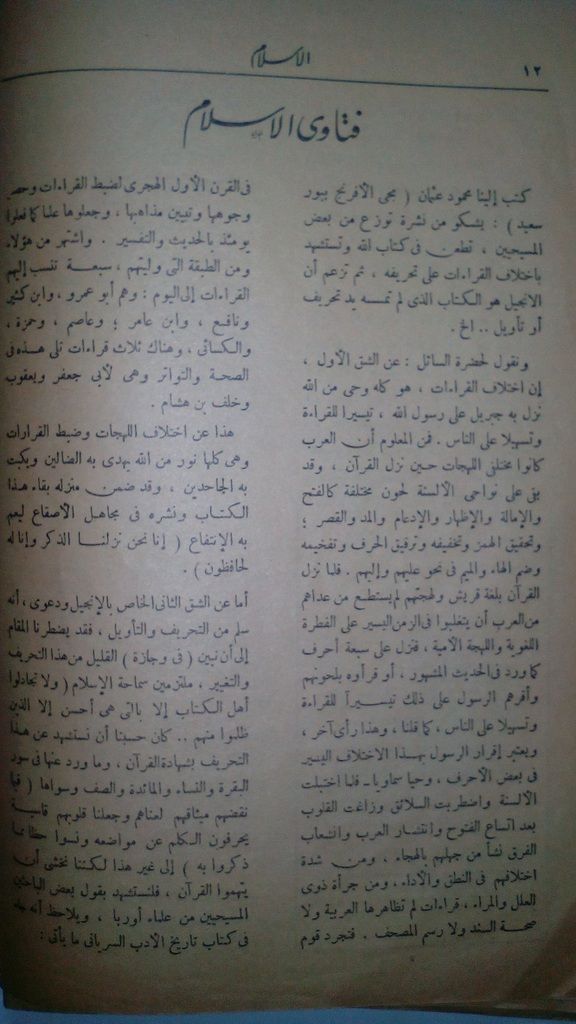 ١٢
الاسلام
فتاوى الاسلام
كتب إلينا محمود عثمان ( بحى الأفرنج ببور
سعيد ) : يشكو من نشرة توزع من بعض
المسيحيين ، تطعن فى كتاب الله وتستشهد
باختلاف القراءات على تحريفه ، ثم تزعم أن
الانجيل هو الكتاب الذى لم تمسه يد تحريف
أو تأويل .. الخ .
ونقول لحضرة السائل : عن الشق الأول ،
إن اختلاف القراءات ، هو كله وحى من الله
نزل به جبريل على رسول الله ، تيسيرا للقراءة
وتسهيلا على الناس . فمن المعلوم أن العرب
كانوا مختلفى اللهجات حين نزل القرآن ، وقد
بقى على نواحى الألسنة لحون مختلفة كالفتح
والإمالة والإظهار والإدغام والمد والقصر ؛
وتحقيق الهمز وتخفيفه وترقيق الحرف وتفخيمه
وضم الهاء والميم فى نحو عليهم وإليهم . فلما نزل
القرآن بلغة قريش ولهجتهم لم يستطع من عداهم
من العرب أن يتغلبوا فى الزمن اليسير على الفطرة
اللغوية واللهجة الأمية ، فنزل على سبعة أحرف
كما ورد فى الحديث المشهور ، أو قرأوه بلحونهم
وأقرهم الرسول على ذلك تيسيرآ للقراءة
وتسهيلا على الناس ، كما قلنا ، وهذا رأى آخر ،
ويعتبر إقرار الرسول بهذا الاختلاف اليسير
فى بعض الأحرف ، وحيا سماويا ـ فلما اختبلت
الألسنة واضطربت السلائق وزاغت القلوب
بعد اتساع الفتوح وانتشار العرب وانشعاب
الفرق نشأ من جهلهم بالهجاء ، ومن شدة
اختلافهم فى النطق والأداء ، ومن جرأة ذوى
العلل والمراء ، قراءات لم تظاهرها العربية ولا
صحة السند ولا رسم المصحف . فتجرد قوم
فى القرن الأول الهجرى لضبط القراءات وحصر
وجوهها وتعيين مذاهبها ، وجعلوها علما كما فعلوا
يومئذ بالحديث والتفسير . واشتهر من هؤلاء
ومن الطبقة التى وليتهم ، سبعة تنسب إليهم
القراءات إلى اليوم : وهم أبو عمرو ، وابن كثير
ونافع ، وابن عامر ؛ وعاصم ، وحمزة ،
والكسائى ، وهناك ثلاث قراءات تلى هذه فى
الصحة والتواتر وهى لأبى جعفر ويعقوب
وخلف بن هشام .
هذا عن اختلاف اللهجات وضبط القرارات
وهى كلها نور من الله يهدى به الضالين ويكبت
به الجاحدين ، وقد ضمن منزله بقاء هذا
الكتاب ونشره فى مجاهل الأصقاع ليعم
به الإنتفاع ( إنا نحن نزلنا الذكر وإنا له
لحافظون ) .
أما عن الشق الثانى الخاص بالإنجيل ودعوى ، أنه
سلم من التحريف والتأويل ، فقد يضطرنا المقام
إلى أن نبين ( فى وجازة ) القليل من هذا التحريف
والتغيير ، ملتزمين سماحة الإسلام ( ولا تجادلوا
أهل الكتاب إلا بالتى هى أحسن إلا الذين
ظلموا منهم .. كان حسبنا أن نستشهد عن هذا
التحريف بشهادة القرآن ، وما ورد عنها فى سور
البقرة والنساء والمائدة والصف وسواها ( فبما
نقضهم ميثاقهم لعناهم وجعلنا قلوبهم قاسية
يحرفون الكلم عن مواضعه ونسوا حظا مما
ذكروا به ) إلى غير هذا لكننا نخشى أن
يتهموا القرآن ، فلنستشهد بقول بعض الباحثين
المسيحيين من علماء أوربا ، ويلاحظ أنه جاء
فى كتاب تاريخ الأدب السريانى ما يأتى :